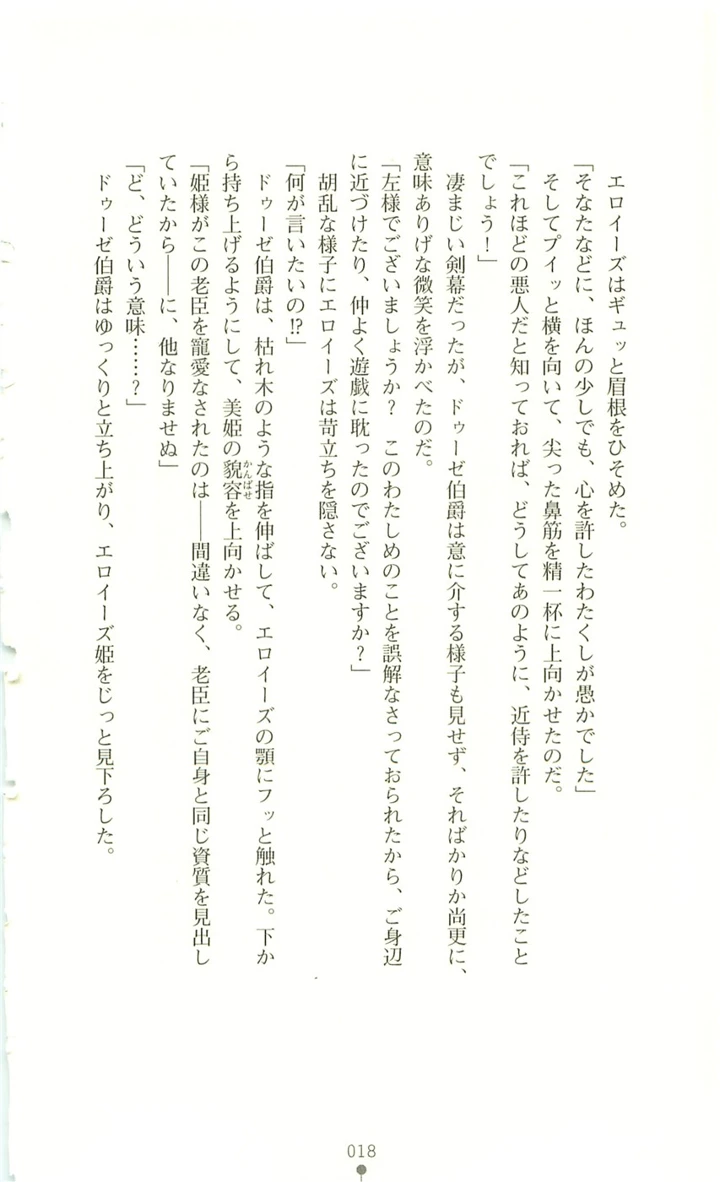 エロイーズはギュッと眉根をひそめた。
「そなたなどに、ほんの少しでも、心を許したわたくしが愚かでした」
そしてプイッと横を向いて、尖った鼻筋を精一杯に上向かせたのだ。
「これほどの悪人だと知っておれば、どうしてあのように、近侍を許したりなどしたこと
でしょう！」
凄まじい剣幕だったが、ドゥーゼ伯爵は意に介する様子も見せず、そればかりか尚更に、
意味ありげな微笑を浮かべたのだ。
「左様でございましょうか？　このわたしめのことを誤解なさっておられたから、ご身辺
に近づけたり、仲よく遊戯に耽ったのでございますか？」
胡乱な様子にエロイーズは苛立ちを隠さない。
「何が言いたいの!?」
ドゥーゼ伯爵は、枯れ木のような指を伸ばして、エロイーズの顎にフッと触れた。下か
ら持ち上げるようにして、美姫の貌容かんばせを上向かせる。
「姫様がこの老臣を寵愛なされたのは――間違いなく、老臣にご自身と同じ資質を見出し
ていたから――に、他なりませぬ」
「ど、どういう意味……？」
ドゥーゼ伯爵はゆっくりと立ち上がり、エロイーズ姫をじっと見下ろした。
018